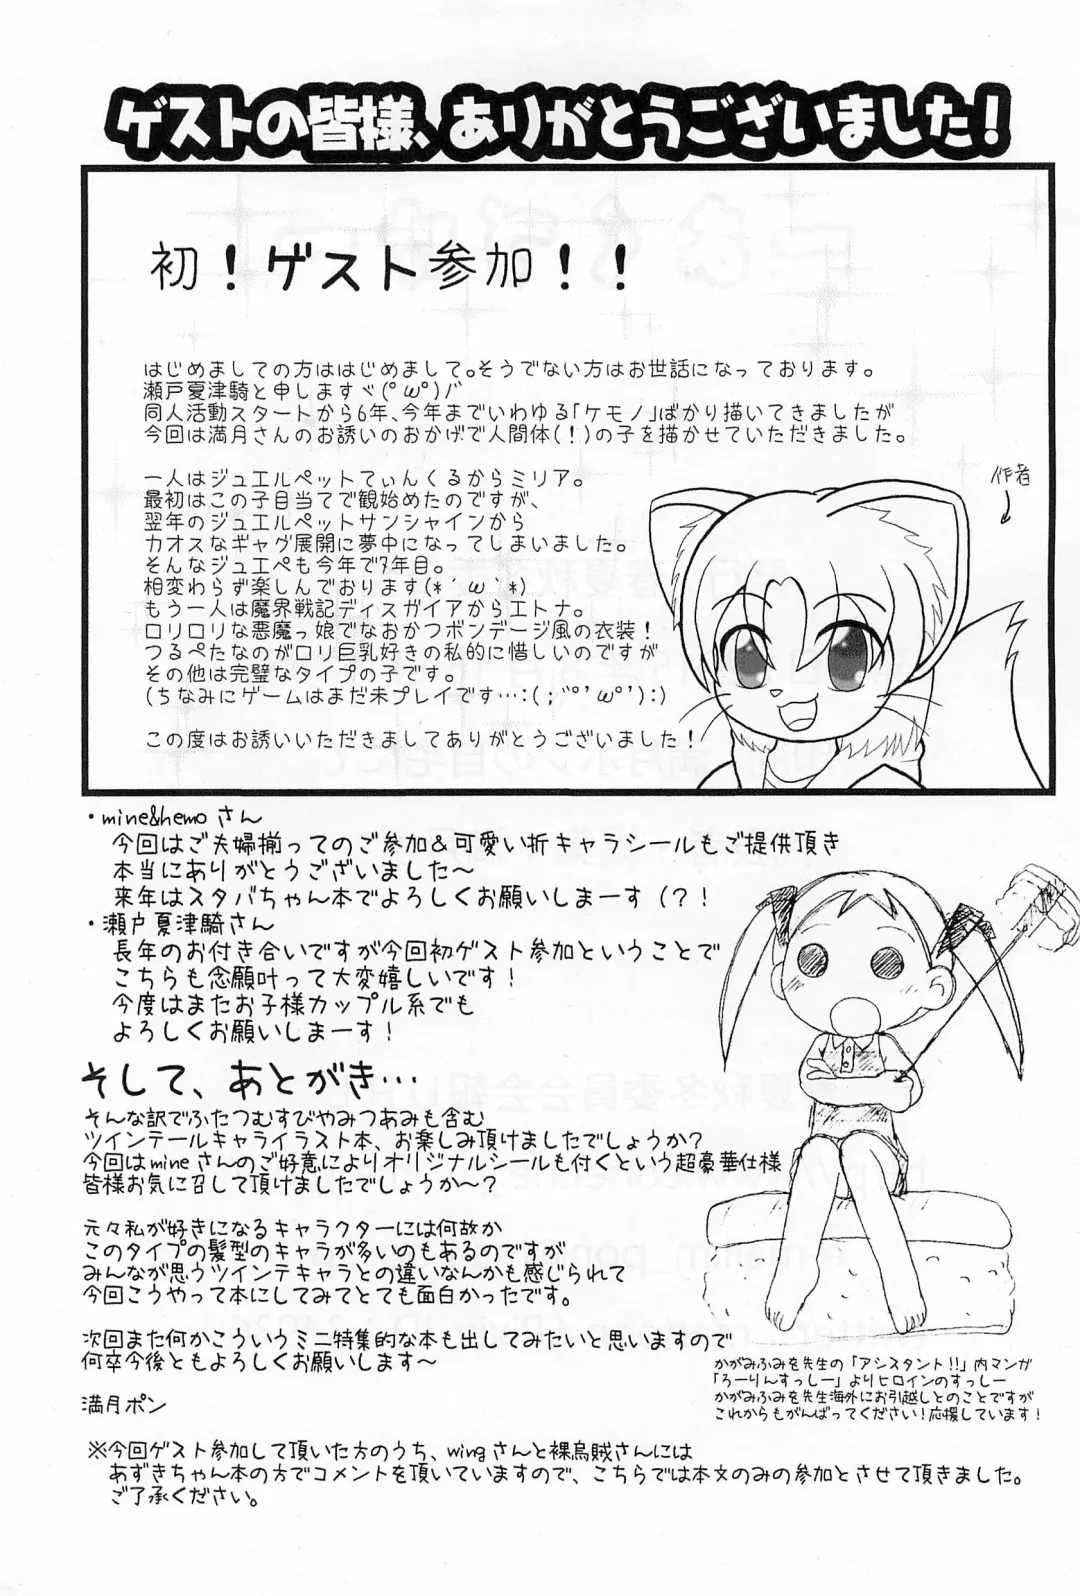 ゲストの皆様、ありがとうございました！
初！ゲスト参加！！
はじめましての方ははじめまして。そうでない方はお世話になっております。
瀬戸夏津騎と申しますヾ(°ω°)ﾉ゛
同人活動スタートから6年、今年までいわゆる「ケモノ」ばかり描いてきましたが
今回は満月さんのお誘いのおかげで人間体(！)の子を描かせていただきました。
一人はジュエルペットてぃんくるからミリア。
最初はこの子目当てで観始めたのですが、
翌年のジュエルペットサンシャインから
カオスなギャグ展開に夢中になってしまいました。
そんなジュエペも今年で7年目。
相変わらず楽しんでおります(*´ω`*)
もう一人は魔界戦記ディスガイアからエトナ。
ロリロリな悪魔っ娘でなおかつボンデージ風の衣装！
つるぺたなのがロリ巨乳好きの私的に惜しいのですが
その他は完璧なタイプの子です。
(ちなみにゲームはまだ未プレイです…:(；゛°'ω°'):)
この度はお誘いいただきましてありがとうございました！
作者
・mine&hemoさん
今回はご夫婦揃ってのご参加＆可愛い折キャラシールもご提供頂き
本当にありがとうございました～
来年はスタバちゃん本でよろしくお願いしまーす（？！
・瀬戸夏津騎さん
長年のお付き合いですが今回初ゲスト参加ということで
こちらも念願叶って大変嬉しいです！
今度はまたお子様カップル系でも
よろしくお願いしまーす！
そして、あとがき…
そんな訳でふたつむすびやみつあみも含む
ツインテールキャライラスト本、お楽しみ頂けましたでしょうか？
今回はmineさんのご好意によりオリジナルシールも付くという超豪華仕様
皆様お気に召して頂けましたでしょうか～？
元々私が好きになるキャラクターには何故か
このタイプの髪型のキャラが多いのもあるのですが
みんなが思うツインテキャラとの違いなんかも感じられて
今回こうやって本にしてみてとても面白かったです。
次回また何かこういうミニ特集的な本も出してみたいと思いますので
何卒今後ともよろしくお願いします～
満月ポン
かがみふみを先生の「アシスタント!!」内マンガ
「ろーりんすっしー」よりヒロインのすっしー
かがみふみを先生海外にお引越しとのことですが
これからもがんばってください！応援しています！
※今回ゲスト参加して頂いた方のうち、wingさんと裸烏賊さんには
あずきちゃん本の方でコメントを頂いていますので、こちらでは本文のみの参加とさせて頂きました。
ご了承ください。